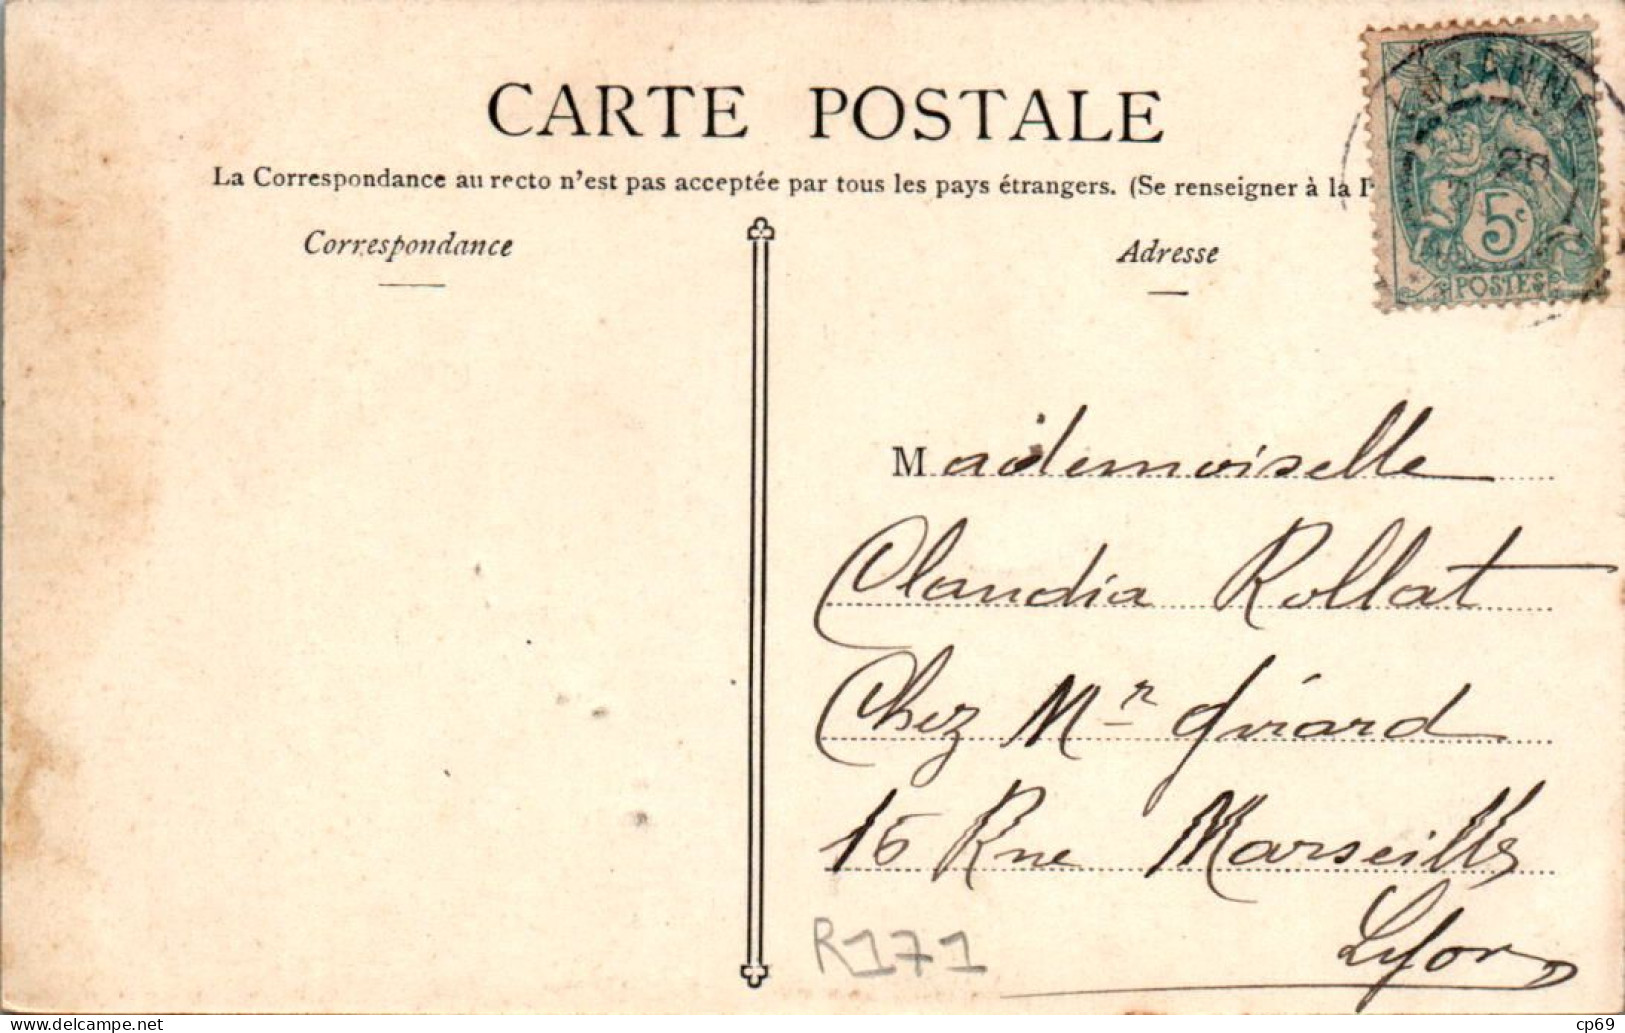 CARTE POSTALE
La Correspondance au recto n'est pas acceptée par tous les pays étrangers. (Se renseigner à la
Correspondance
Adresse
5c
POSTES
20
Mademoiselle
Claudia Rollat
Chez Mr Girard
15 Rue Marseille
Lyon
R171
www.delcampe.net
cp69